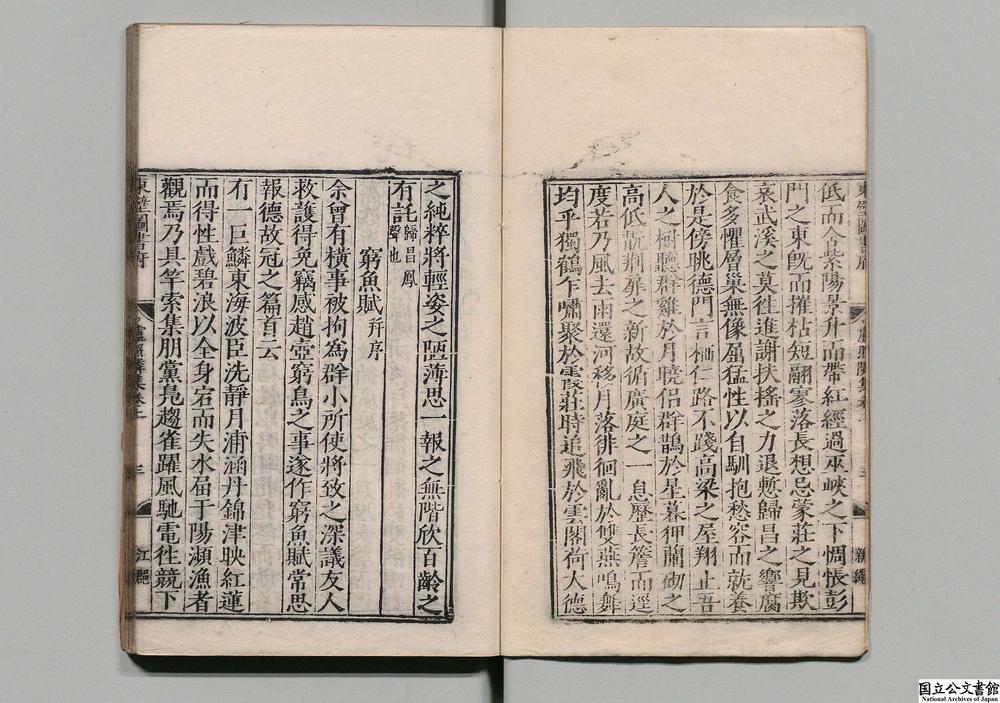 低而含紫陽景升而帶紅經過巫峽之下惆悵彭
門之東既而摧枯短翮寥落長想忌蒙莊之見欺
哀武溪之莫往進謝扶搖之力退慙歸昌之響腐
食多懼層巢無像屈猛性以自馴抱愁容而就養
於是傍眺德門言栖仁路不踐高梁之屋翔止吾
人之樹聽群雞於月曉侶群鵲於星暮狎蘭砌之
高低翫荆扉之新故循廣庭之一息歷長簷而逕
度若乃風去雨還河移月落徘徊亂於雙燕鳴舞
均乎獨鶴乍嘯聚於霞莊時追飛於雲閣荷大德
東壁圖書府
盧照隣集卷二
三
江郢
之純粹將輕姿之陋薄思一報之無階欣百齡之
有託歸昌鳳聲也
窮魚賦并序
余曾有橫事被拘為群小所使將致之深議友人
救護得免竊感趙壹窮鳥之事遂作窮魚賦常思
報德故冠之篇首云
有一巨鱗東海波臣洗靜月浦涵丹錦津映紅蓮
而得性戲碧浪以全身宕而失水屆于陽瀨漁者
觀焉乃具竿索集朋黨鳧趨雀躍風馳電往競下
国立公文書館
National Archives of Japan